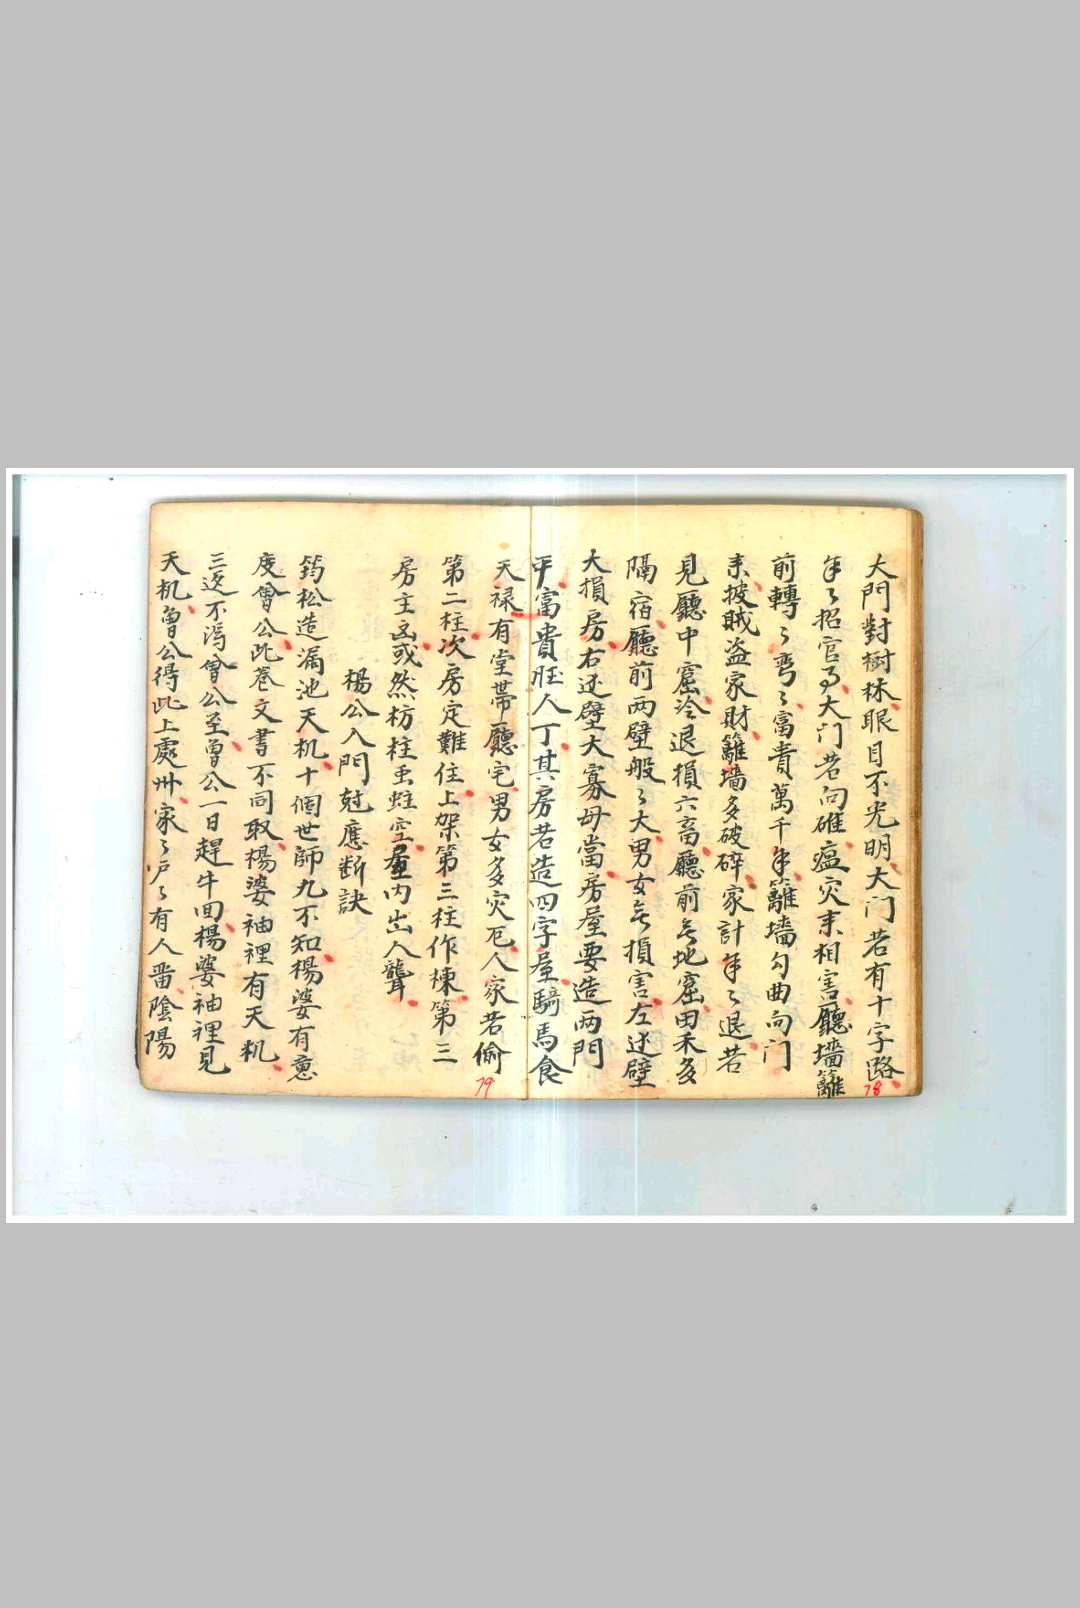 大門對樹林眼目不光明大门若有十字路
年々招官事大门若向碓瘟灾来相害廳墻籬
前轉々弯々富貴萬千年籬墻勾曲向门
来披賊盗家財籬墻多破碎家計年々退若
見廳中窟冷退損六畜廳前去地窟田禾多
隔宿廳前两壁般々大男女無損害左边壁
大損房右边壁大寡母當房屋要造两門
平富貴旺人丁其房若造四字屋騎馬食
天禄有堂带廳宅男女多灾厄人家若偷
第二柱次房定難住上架第三柱作棟第三
房主凶或然枋柱虫蛀空屋内出入聾
楊公入門尅應断訣
筠松造漏池天机十個世師九不知楊婆有意
度曾公此卷文書不同取楊婆袖裡有天机
三返不瀉曾公至曾公一日趕牛回楊婆袖裡見
天机曾公得此上處州家々户々有人畨陰陽
78
79